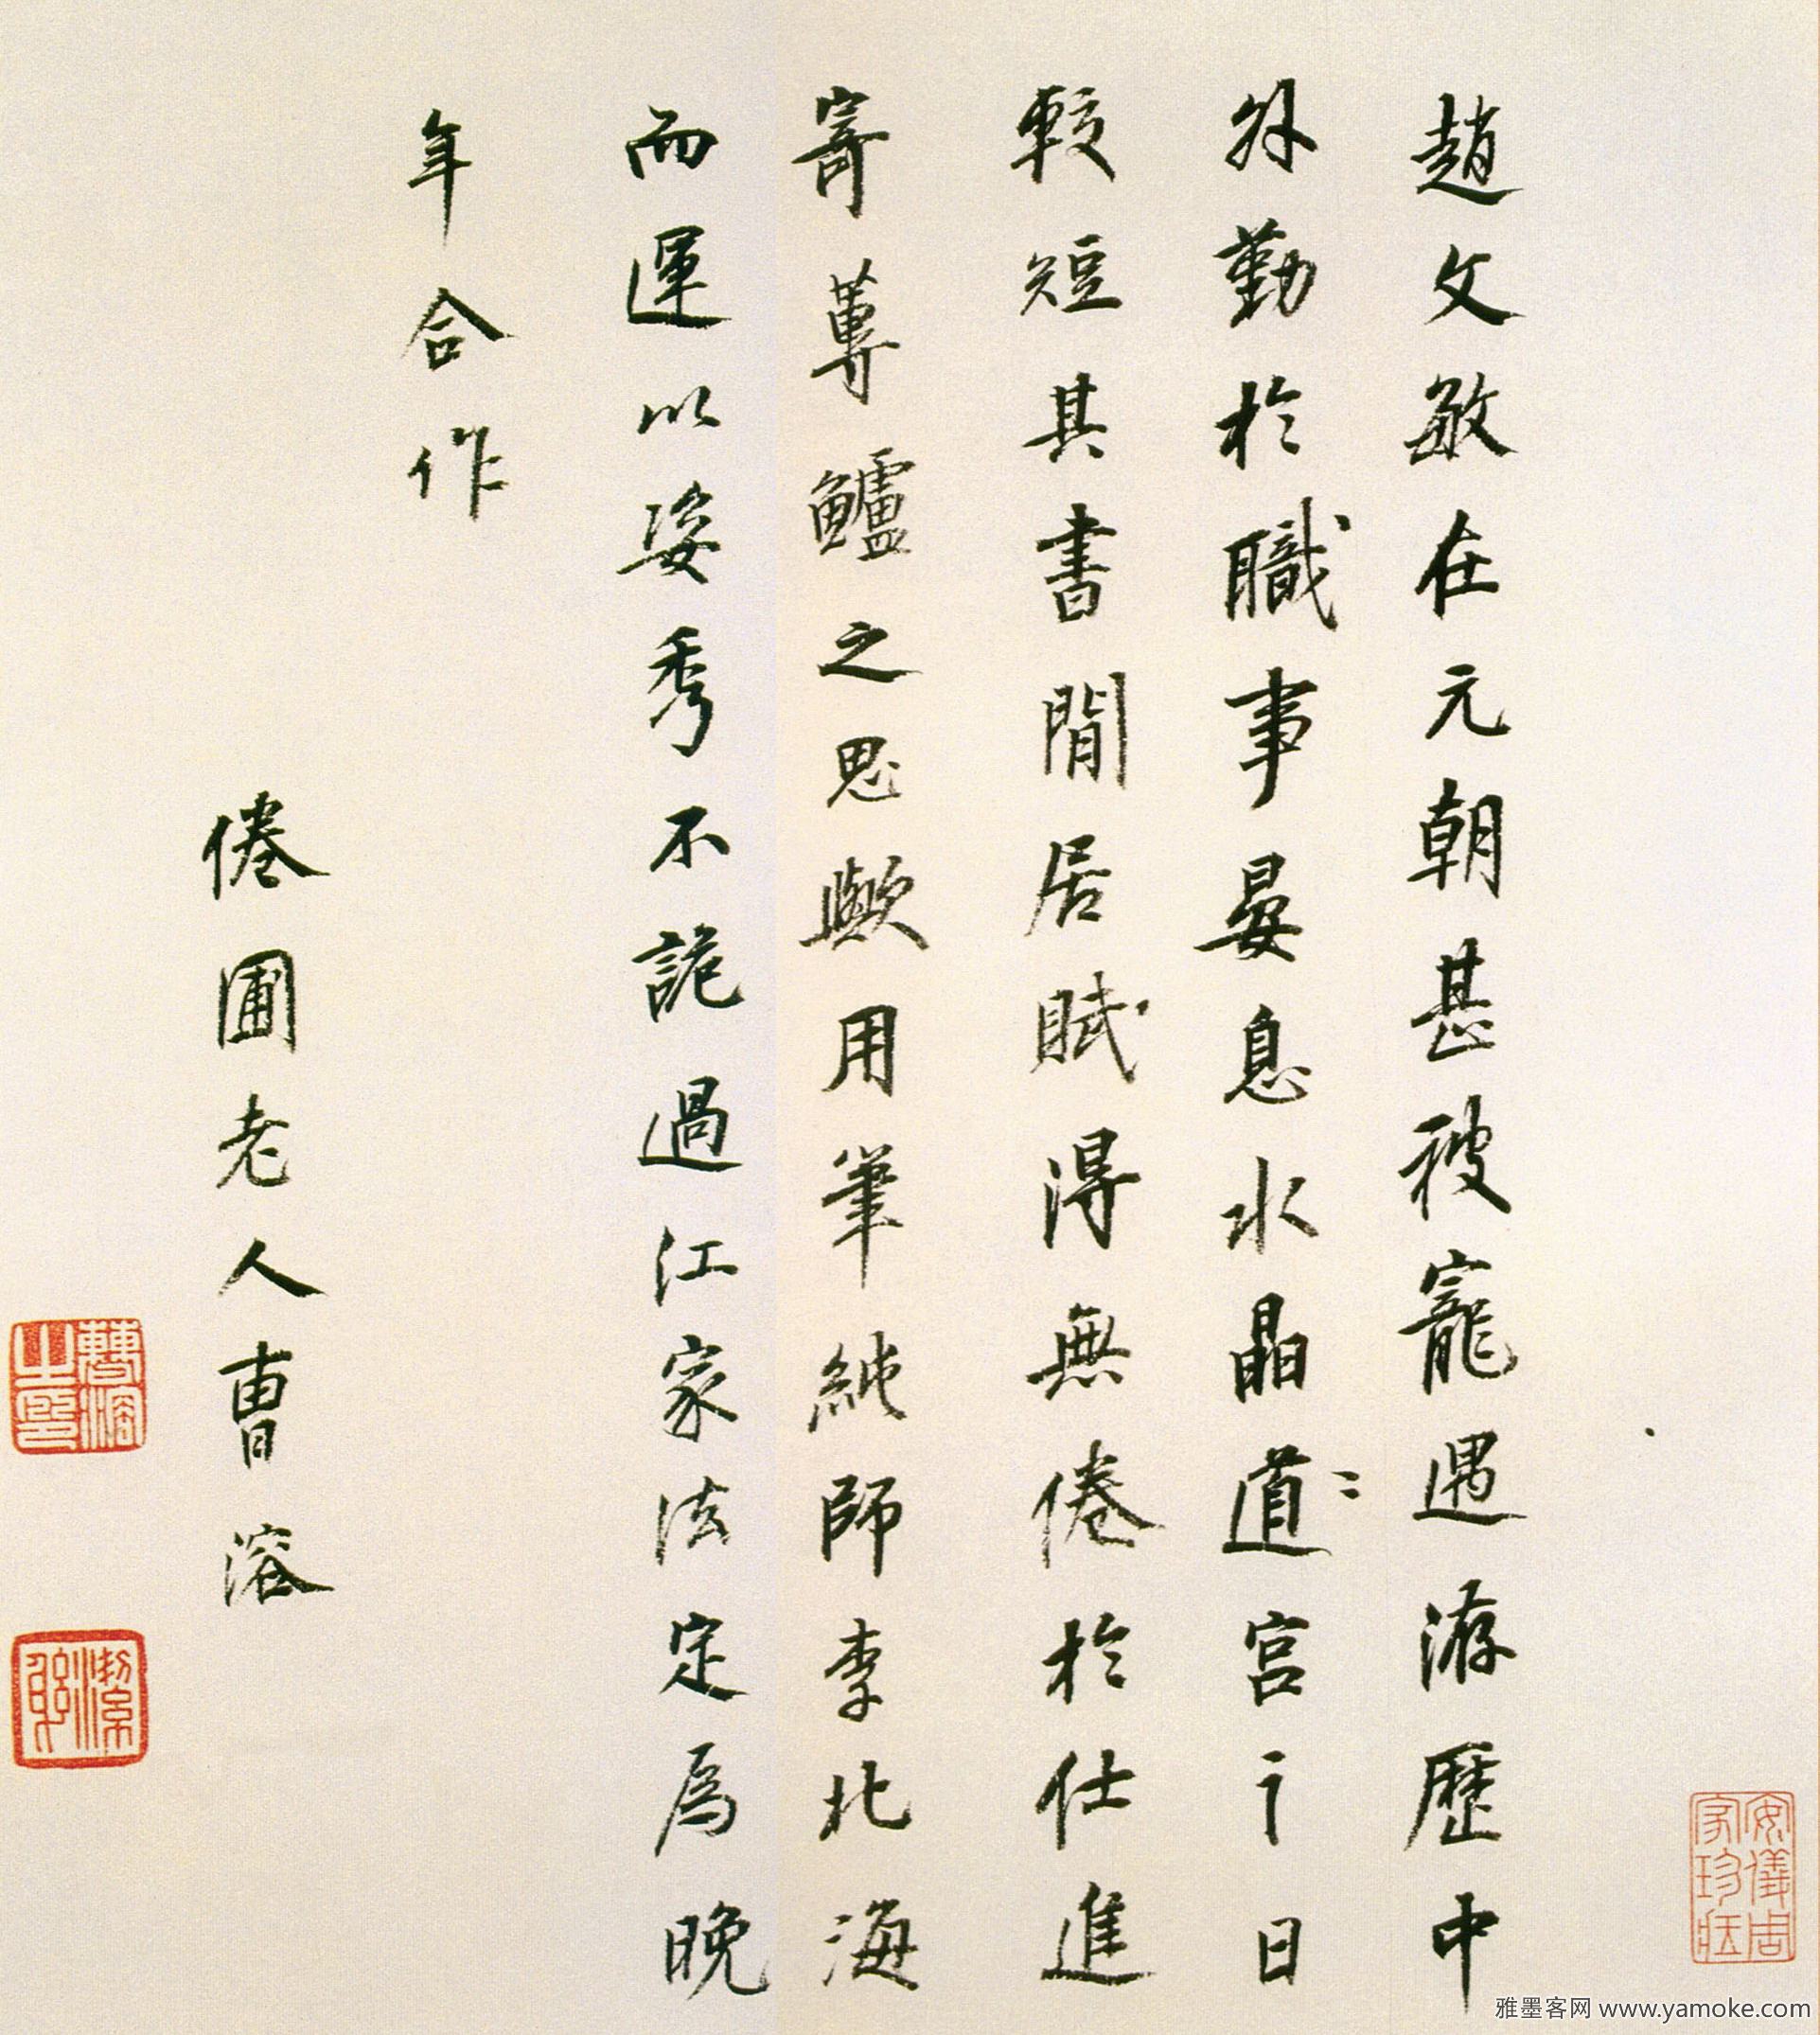 趙文敏在元朝甚被寵遇游歷中
外勤於職事晏息水晶道宮之日
較短其書閒居賦得無倦於仕進
寄蓴鱸之思歟用筆純師李北海
而運以姿秀不詭過江家法定為晚
年合作
倦圃老人曹溶
曹溶之印
潔躬
安儀周家珍藏
雅墨客网 www.yamoke.com